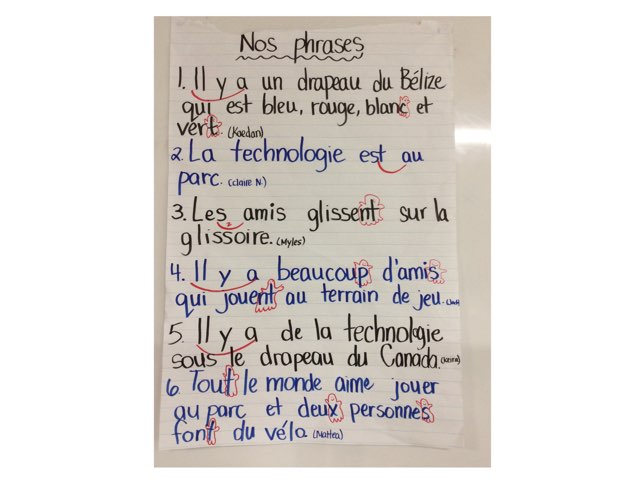 Nos phrases
1. Il y a un drapeau du Bélize
qui est bleu, rouge, blanc et
vert. (Kaedan)
2. La technologie est au
parc. (Claire N.)
3. Les amis glissent sur la
glissoire. (Myles)
4. Il y a beaucoup d'amis
qui jouent au terrain de jeu.
5. Il y a de la technologie
sous le drapeau du Canada. (Keira)
6. Tout le monde aime jouer
au parc et deux personnes
font du vélo. (Mattea)